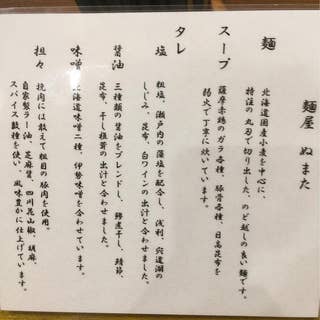 麺屋 ぬまた
麺
北海道国産小麦を中心に、
特注の丸刃で切り出した、のど越しの良い麺です。
スープ
薩摩赤鶏のガラ各種、豚骨各種、日高昆布を
弱火で丁寧に炊いています。
タレ
塩
粗塩、瀬戸内の藻塩を配合し、浅利、宍道湖の
しじみ、昆布、白ワインの出汁と合わせました。
醤油
三種類の醤油をブレンドし、鰹煮干し、鯖節、
昆布、干し椎茸の出汁と合わせました。
味噌
北海道味噌二種、伊勢味噌を合わせています。
担々
挽肉には敢えて粗目の豚肉を使用。
自家製ラー油、芝麻醤、四川花山椒、胡麻、
スパイス数種を使い、風味豊かに仕上げています。